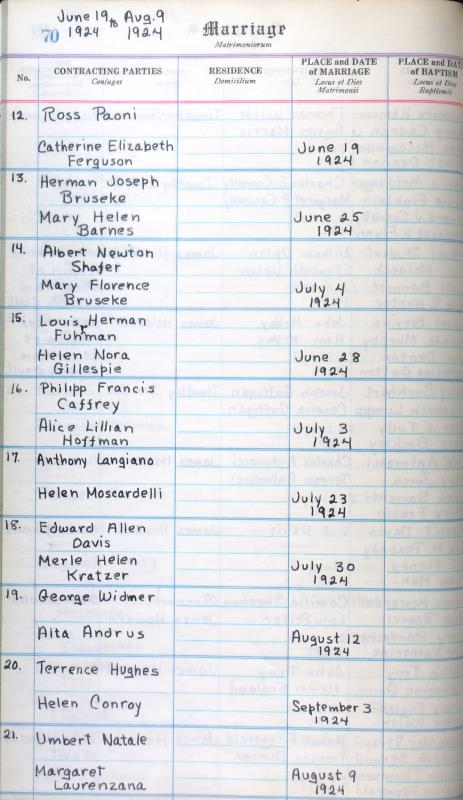 June 19 to Aug. 9
1924 1924
70
Marriage
Matrimoniorum
No.
CONTRACTING PARTIES
Conjuges
RESIDENCE
Domicilium
PLACE and DATE
of MARRIAGE
Locus et Dies
Matrimonii
PLACE and DATE
of BAPTISM
Locus et Dies
Baptismii
12. Ross Paoni
Catherine Elizabeth
Ferguson
June 19
1924
13. Herman Joseph
Bruseke
Mary Helen
Barnes
June 25
1924
14. Albert Newton
Shafer
Mary Florence
Bruseke
July 4
1924
15. Louis Herman
Fuhman
Helen Nora
Gillespie
June 28
1924
16. Philipp Francis
Caffrey
Alice Lillian
Hoffman
July 3
1924
17. Anthony Langiano
Helen Moscardelli
July 23
1924
18. Edward Allen
Davis
Merle Helen
Kratzer
July 30
1924
19. George Widmer
Alta Andrus
August 12
1924
20. Terrence Hughes
Helen Conroy
September 3
1924
21. Umbert Natale
Margaret
Laurenzana
August 9
1924